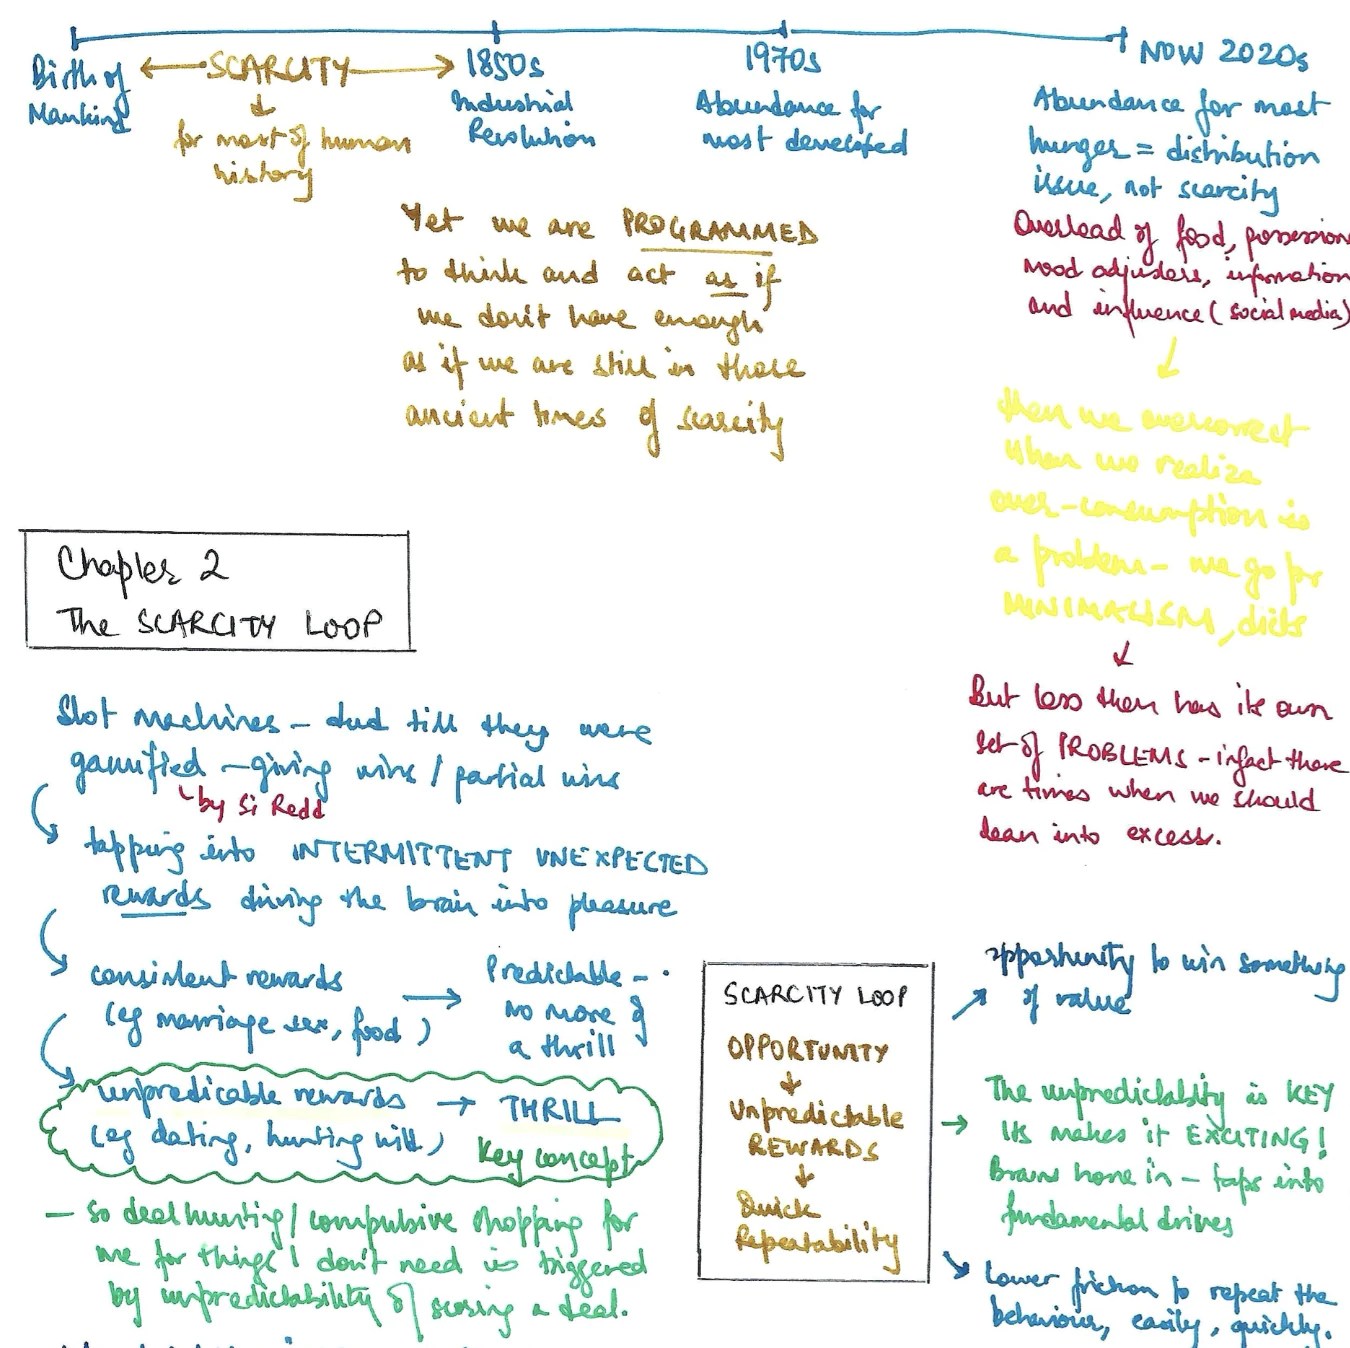 Birth of
Mankind
SCARCITY
for most of human
history
1850s
Industrial
Revolution
1970s
Abundance for
most developed
NOW 2020s
Abundance for most
hunger = distribution
issue, not scarcity
Overload of food, possession
mood adjusters, information
and influence (social media)
Yet we are PROGRAMMED
to think and act as if
we don't have enough
as if we are still in those
ancient times of scarcity
then we overcorrect
when we realize
over-consumption is
a problem - we go for
MINIMALISM, diets
But less then has its own
set of PROBLEMS - infact there
are times when we should
lean into excess.
Chapter 2
The SCARCITY LOOP
Slot machines - dud till they were
gamified - giving wins / partial wins
by Si Redd
tapping into INTERMITTENT UNEXPECTED
rewards driving the brain into pleasure
consistent rewards
(eg marriage sex, food)
Predictable -
no more of
a thrill
unpredicable rewards → THRILL
(eg dating, hunting will)
Key concept
- So deal hunting / compulsive shopping for
me for things I don't need is triggered
by unpredictability of scoring a deal.
SCARCITY LOOP
OPPORTUNITY
Unpredictable
REWARDS
Quick
Repeatability
opportunity to win something
of value
The unpredictablity is KEY
Its makes it EXCITING!
Brains hone in - taps into
fundamental drives
Lower friction to repeat the
behaviour, easily, quickly.